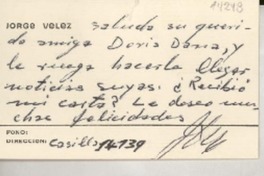 14213
JORGE VELEZ saluda su queri-
da amiga Doris Dana, y
le ruega hacerla llegar
noticias suyas: ¿Recibió
mi carta? Le desea mu-
chas felicidades
FONO:
DIRECCION: Casilla 14139